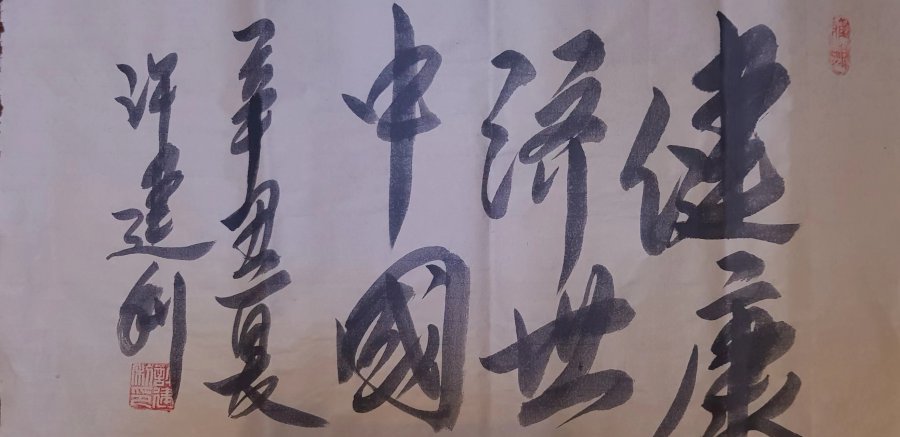 健康
济世
中國
辛丑夏
许建利